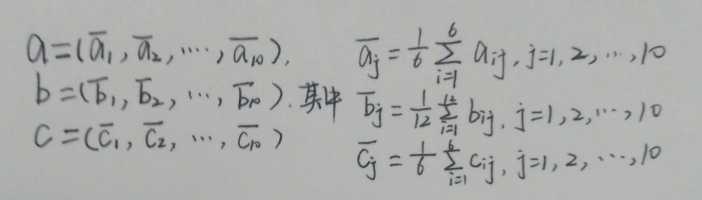 a=(a̅₁, a̅₂, ⋯, a̅₁₀), a̅ⱼ = 1/6 ∑_{i=1}^{6} aᵢⱼ, j=1, 2, ⋯, 10
b=(b̅₁, b̅₂, ⋯, b̅₁₀). 其中 b̅ⱼ = 1/12 ∑_{i=1}^{12} bᵢⱼ, j=1, 2, ⋯, 10
c=(c̅₁, c̅₂, ⋯, c̅₁₀) c̅ⱼ = 1/6 ∑_{i=1}^{6} cᵢⱼ, j=1, 2, ⋯, 10